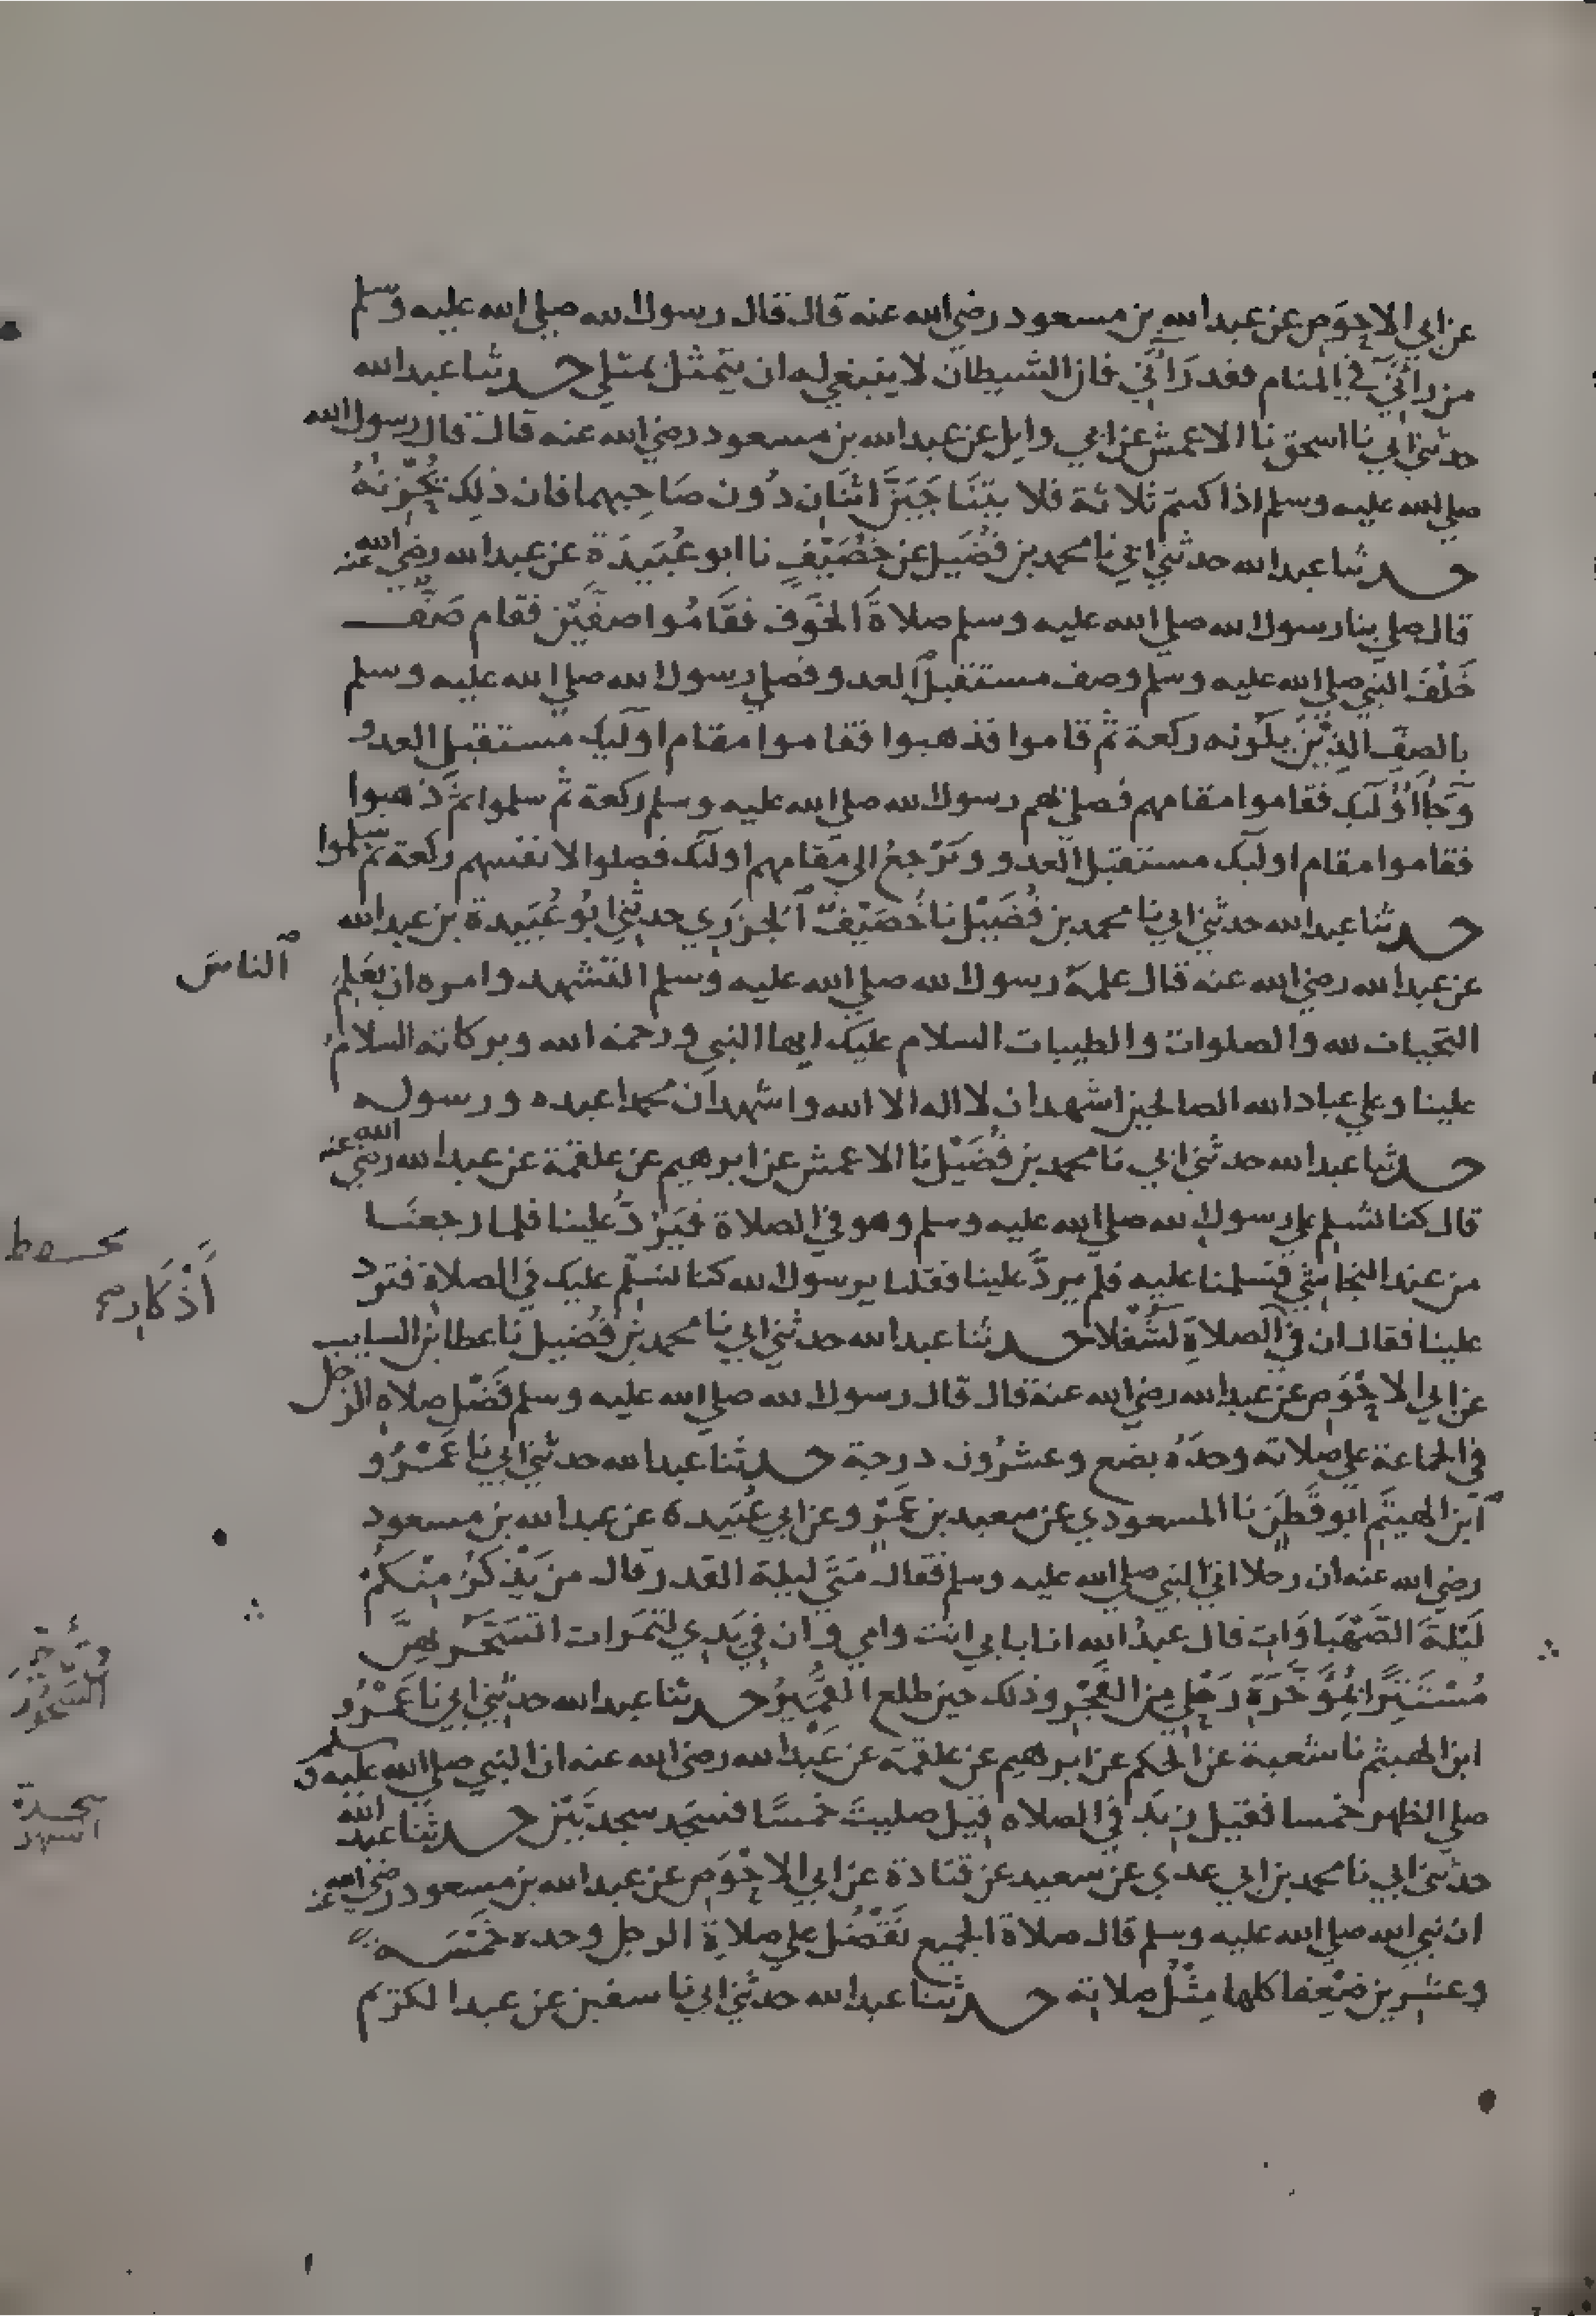 عن ابي الاحوص عن عبد الله بن مسعود رضي الله عنه قال قال رسول الله صلى الله عليه وسلم
من رآني في المنام فقد رَآني فان الشيطان لا ينبغي له ان يتمثل بمثلي حدثنا عبد الله
حدثني ابي نا اسحق نا الاعمش عن ابي وايل عن عبد الله بن مسعود رضي الله عنه قال قال رسول الله
صلى الله عليه وسلم اذا كنتم ثلاثة فلا يتناجَيَنَّ اثنان دُون صَاحِبهما فان ذلك يُحْزِنهُ
حدثنا عبد الله حدثني ابي نا محمد بن فُضَيل عن خُصَيْفٍ نا ابو عُبَيدَة عن عبد الله رضي الله عنه
قال صلى بنا رسول الله صلى الله عليه وسلم صلاة الخوف فقَامُوا صفَّين فقام صَفّ
خَلْفَ النبي صلى الله عليه وسلم وصف مستقبل العدو فصلى رسول الله صلى الله عليه وسلم
بالصف الذين يلونه ركعة ثم قاموا فذهبوا فقاموا مقام اوليك مستقبل العدو
وجَاَ اُوليك فقاموا مقامهم فصلى بهم رسول الله صلى الله عليه وسلم ركعة ثم سلموا ثم ذهبوا
فقاموا مقام اوليك مستقبل العدو ورَجعُ الى مقامهم اوليك فصلوا لانفسهم ركعة ثم سلموا
حدثنا عبد الله حدثني ابي نا محمد بن فُضَيْل نا خُصَيْفٌ الجزَري حدثني ابُو عُبَيدة بن عبد الله
عن عبد الله رضي الله عنه قال علمهُ رسول الله صلى الله عليه وسلم التشهد وامره ان يعَلم
الناسَ
التحيات لله والصلوات والطيبات السلام عليك ايها النبي ورحمة الله وبركاته السلام
علينا وعلى عباد الله الصالحين اشهد ان لا اله الا الله واشهد ان محمدا عبده ورسوله
حدثنا عبد الله حدثني ابي نا محمد بن فُضَيْل نا الاعمش عن ابرهيم عن علقمة عن عبد الله رضي الله عنه
قال كنا نسلم على رسول الله صلى الله عليه وسلم وهو في الصلاة فيَرُدُّ علينا فلما رجعنا
من عند النجاشي فسلمنا عليه فلم يردَّ علينا فقلنا يرسول الله كنا نسَلم عليك في الصلاة فترد
علينا فقال ان في الصلاةِ لَشُغْلا حدثنا عبد الله حدثني ابي نا محمد بن فُضيل نا عطا بن السايب
عن ابي الاحْوَص عن عبد الله رضي الله عنه قال قال رسول الله صلى الله عليه وسلم فَضْل صلاه الرجل
في الجماعة على صلاته وحدَهُ بضع وعشرُون درجة حدثنا عبد الله حدثني ابي نا عَمْرُو
ابن الهيثم ابو قَطَن نا المسعودي عن سعيد بن عَمْرٍو عن ابي عُبَيدة عن عبد الله بن مسعود
رضي الله عنه ان رجلا اتى النبي صلى الله عليه وسلم فقال مَتَى ليلة القدر قال من يَذكرُ منكمْ
لَيْلَةَ الصَّهْبَاوَات قال عبدُ الله انا بابي انت وامي وان في يَدِي لتَمَرات اتَسَحَّر بهنَّ
مُسْتَتِرًا بِمُؤَخَّرَة رَحْلي من الفَجْر وذلك حين طلع القُمَيْرُ حدثنا عبد الله حدثني ابي نا عَمْرُو
ابن الهيثم نا شعبة عن الحكم عن ابرهيم عن علقمة عن عَبْدِ الله رضي الله عنه ان النبي صلى الله عليه وسلم
صلى الظهر خمسا فقيل زيد في الصلاه قيل صليت خمسًا فسجد سجدتين حدثنا عبد الله
سجدة
السهو
حدثني ابي نا محمد بن ابي عدي عن سعيد عن قتادة عن ابي الاحْوَص عن عبد الله بن مسعود رضي الله عنه
ان نبي الله صلى الله عليه وسلم قال صلاة الجميع تَفْضُل على صلاةِ الرجل وحده خَمْسَه
وعشرين ضِعْفا كلها مِثْلُ صلاته حدثنا عبد الله حدثني ابي نا سفين عن عبد الكريم